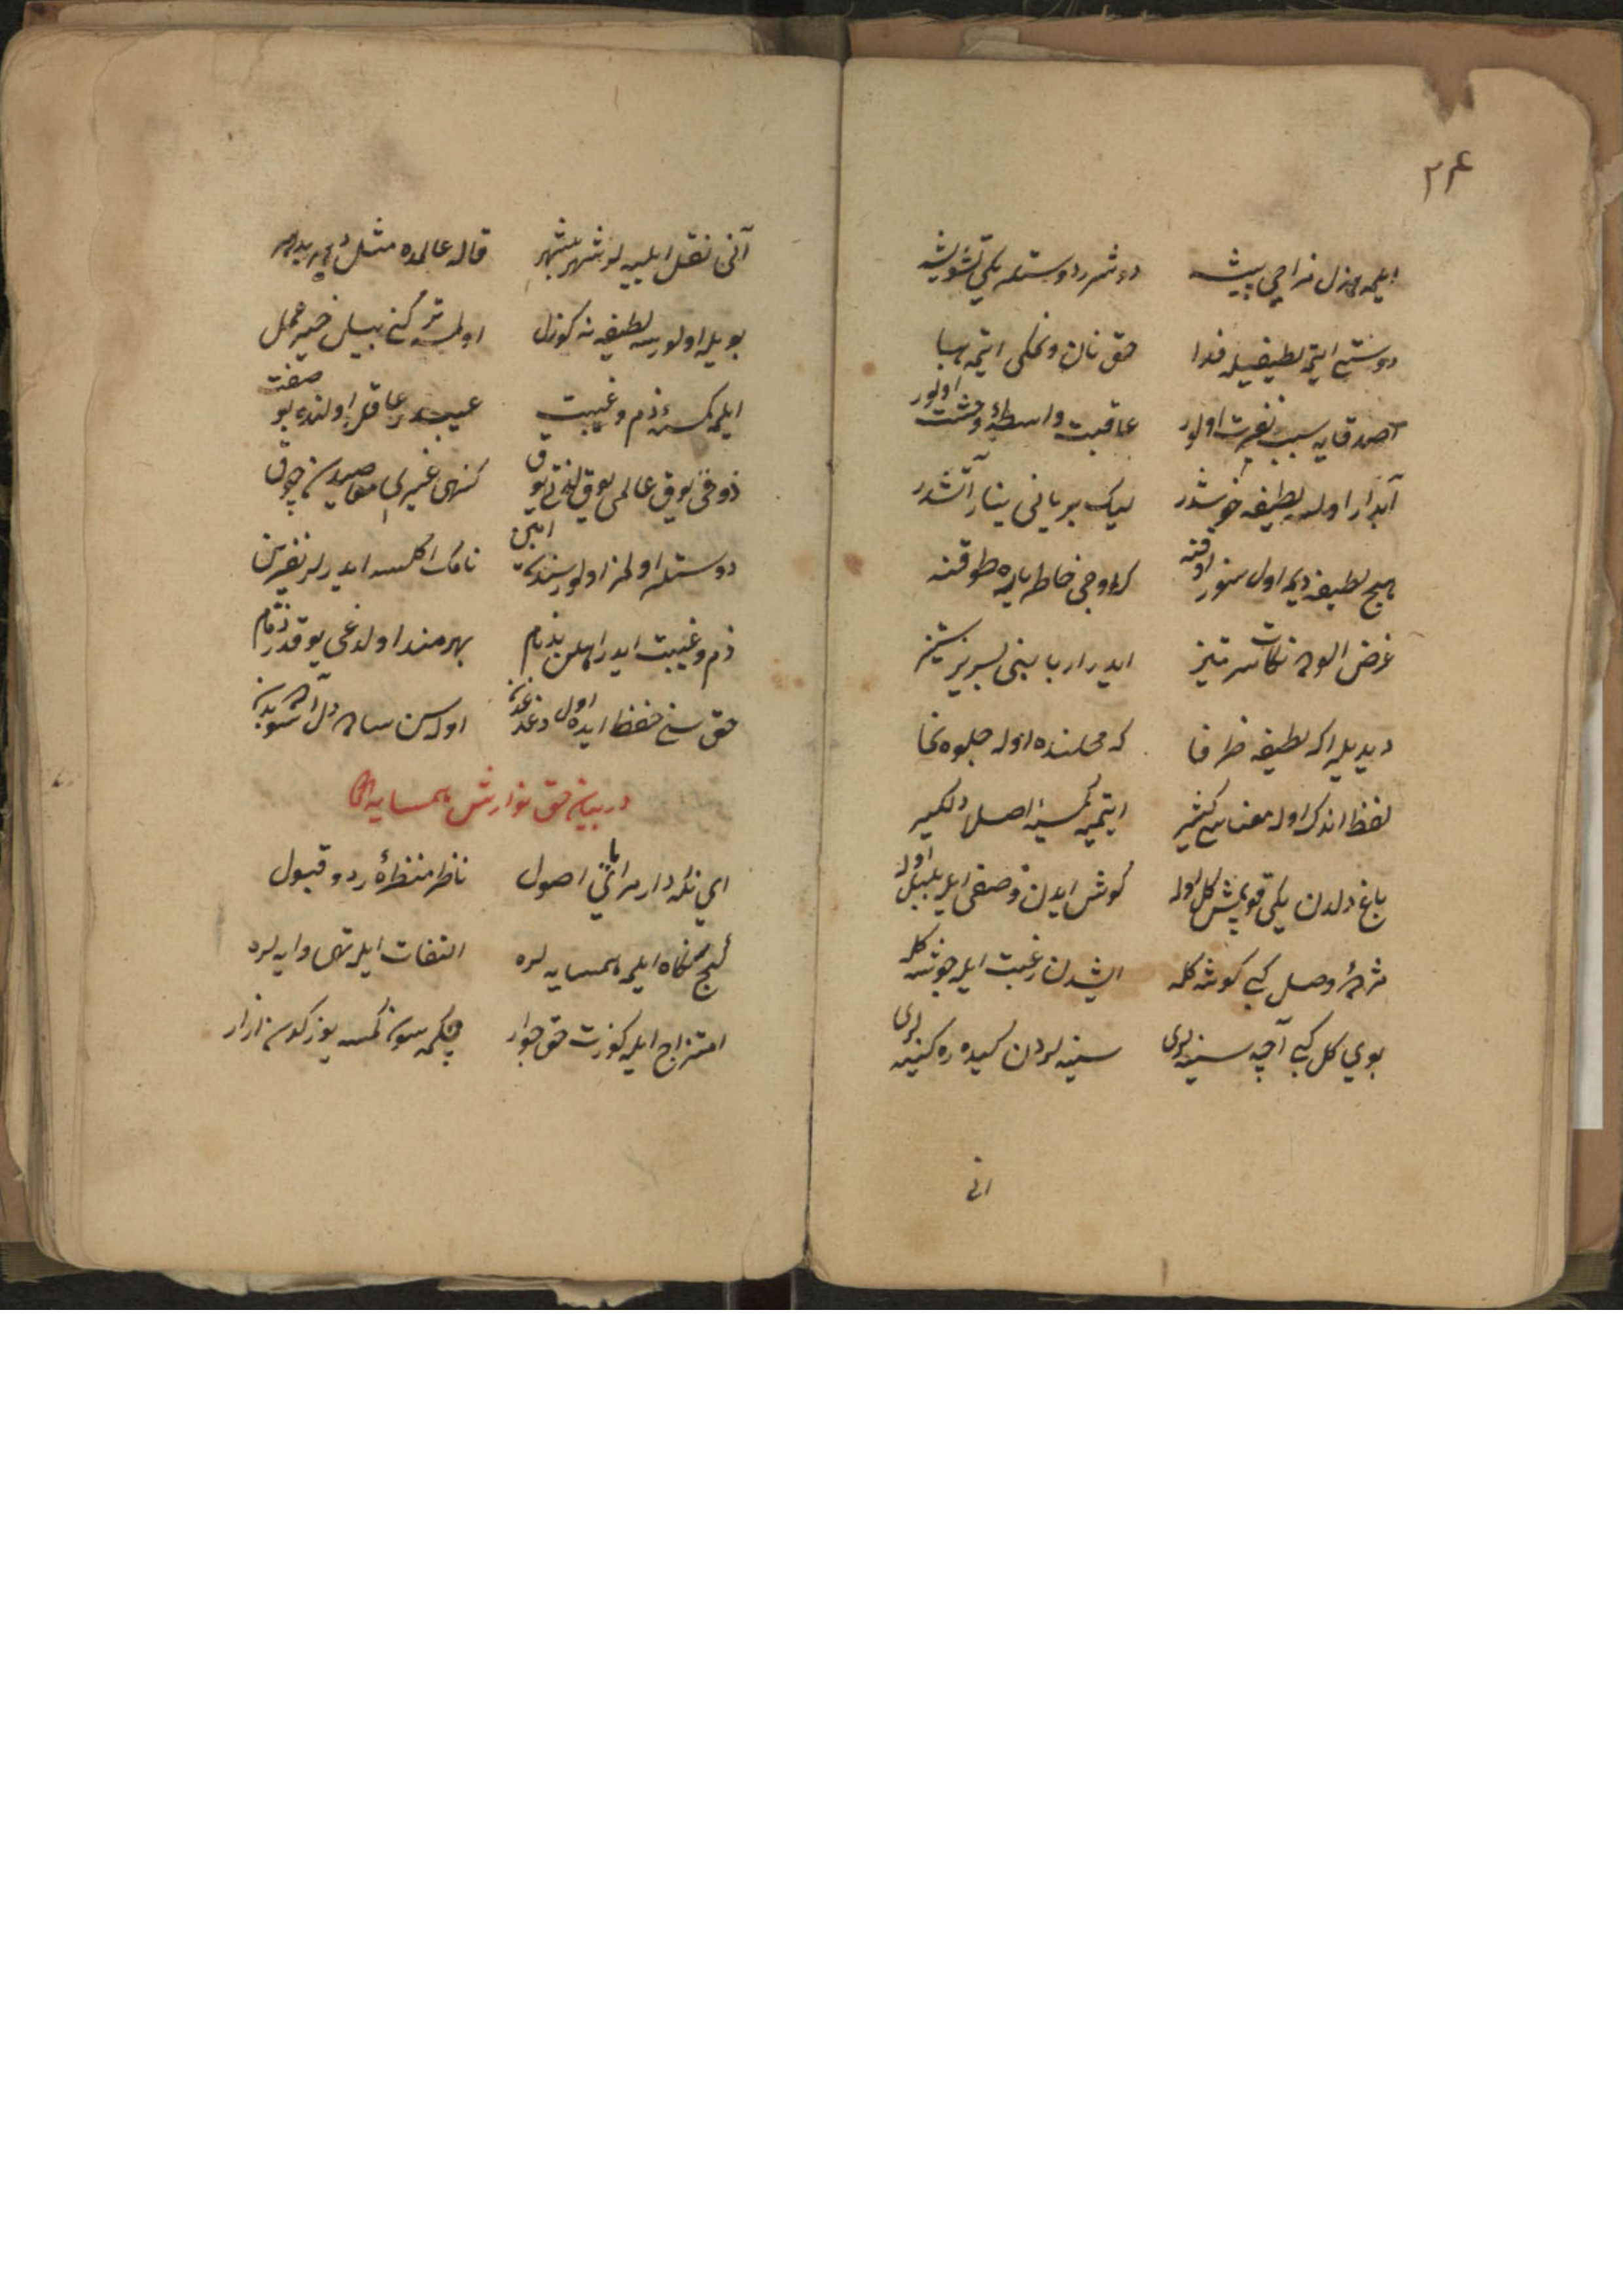 ۳۴
ایلمه هزل مزاحی پیشه
دوشمر دوستلری تشویشه
دوستی ایتمه لطیفیله فدا
حق نان و نمکی ایتمه هبا
اصدقایه سبب نفرت اولور
عاقبت واسطهٔ وحشت اولور
آبدار اوله لطیفه خوشدر
لیک بر یانی ینار آتشدر
هیچ لطیفه دیمه اول سوز
خاطر یاره طوقنه
غرض الوده نکات سر تیز
ایدر اربابنی لبریز ستیز
دیدیلر اکه لطیفه ظرفا
که محلنده اوله جلوه نما
لفظی اندک اوله معناسی کثیر
ایتمیه کمسه‌یی اصلا دلگیر
باغ دلدن یکی قوپمش گل اوله
گوش ایدن وصفی ایله بلبل اوله
مژدهٔ وصل کبی گوشه گله
ایشیدن رغبت ایله جوشه گله
بوی گل کبی آچه سینه‌لری
سینه‌لردن گیده‌ره کینه‌لری
انی
آنی نقل ایلیه‌لر شهر بشهر
قاله عالمده مثل
بویله اولورسه لطیفه نه گوزل
اولمسه ترکنی بیل خیر عمل
ایلمه کمسه‌یه ذم و غیبت
عیبدر عاقل اولنده بو صفت
ذوقی یوق عالمی یوق لذتی یوق
نهی غیری معاصیدن چوق
دوستلر اولمز اولور سندن امین
نامک اکلسه ایدرلر نفرین
ذم و غیبت ایدر اهلن بدنام
بهره‌مند اولدغی یوقدر
حق سنی حفظ ایده اول
اوله‌سن
در بیان حق نوازش همسایه‌ها
ای نگهدار مراعات اصول
ناظر منظرهٔ رد و قبول
نگاه ایلمه همسایه‌لره
التفات ایله تهی‌وایه‌لره
امتزاج ایله گوزت حق جوار
چکمه‌سون کمسه یوزکدن آزار